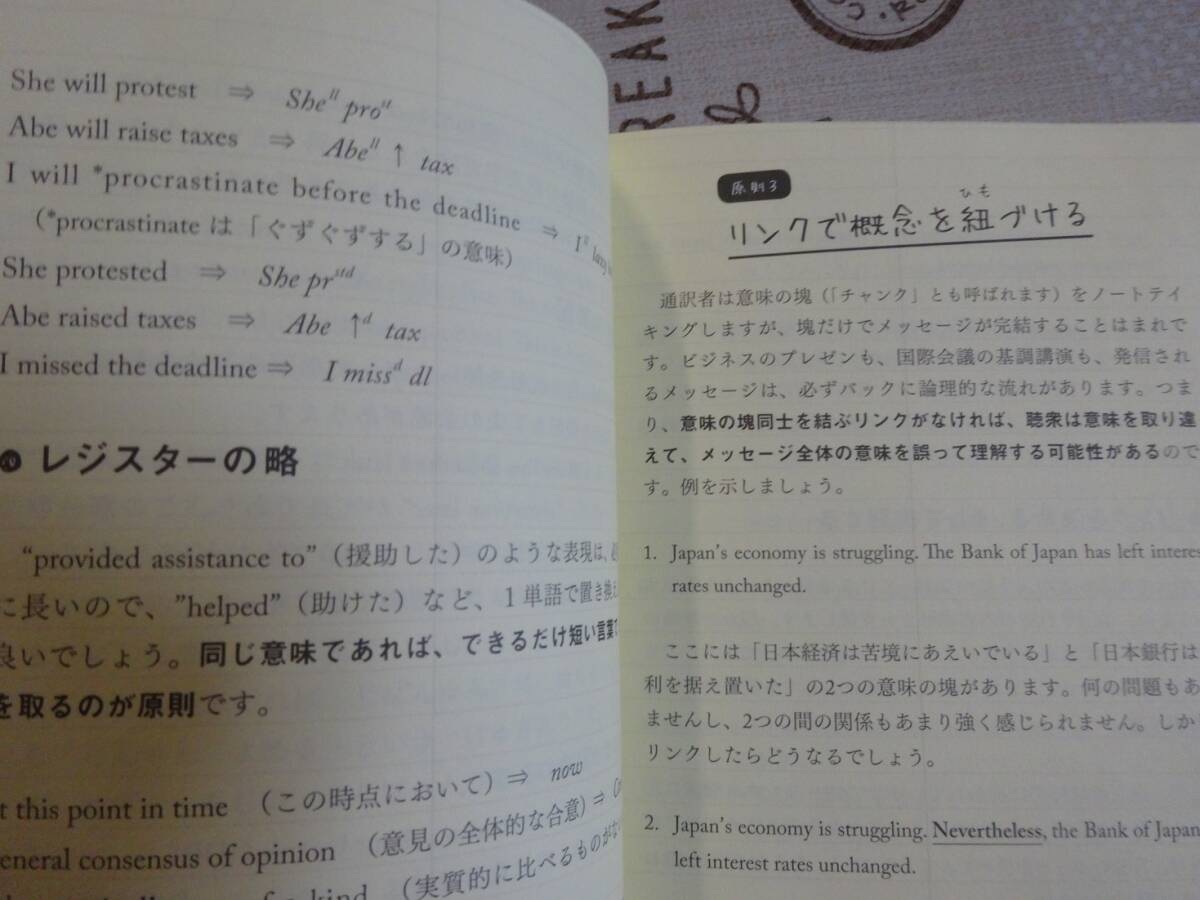 REAK
She will protest ⇒ Sheˡˡ proᵗᵗ
Abe will raise taxes ⇒ Abeˡˡ ↑ tax
I will *procrastinate before the deadline ⇒ Iˡˡ lazy
(*procrastinate は「ぐずぐずする」の意味)
She protested ⇒ She prˢᵗᵈ
Abe raised taxes ⇒ Abe ↑ᵈ tax
I missed the deadline ⇒ I missᵈ dl
レジスターの略
“provided assistance to”(援助した)のような表現は、
に長いので、”helped”(助けた)など、1単語で置き換え
良いでしょう。同じ意味であれば、できるだけ短い言葉で
を取るのが原則です。
t this point in time (この時点において) ⇒ now
eneral consensus of opinion (意見の全体的な合意) ⇒
kind (実質的に比べるものがな
原則3
ひも
リンクで概念を紐づける
通訳者は意味の塊(「チャンク」とも呼ばれます)をノートテイ
キングしますが、塊だけでメッセージが完結することはまれで
す。ビジネスのプレゼンも、国際会議の基調講演も、発信され
るメッセージは、必ずバックに論理的な流れがあります。つま
り、意味の塊同士を結ぶリンクがなければ、聴衆は意味を取り違
えて、メッセージ全体の意味を誤って理解する可能性があるので
す。例を示しましょう。
1. Japan’s economy is struggling. The Bank of Japan has left interes
rates unchanged.
ここには「日本経済は苦境にあえいでいる」と「日本銀行は
利を据え置いた」の2つの意味の塊があります。何の問題もあ
ませんし、2つの間の関係もあまり強く感じられません。しか
リンクしたらどうなるでしょう。
2. Japan’s economy is struggling. Nevertheless, the Bank of Japan
left interest rates unchanged.